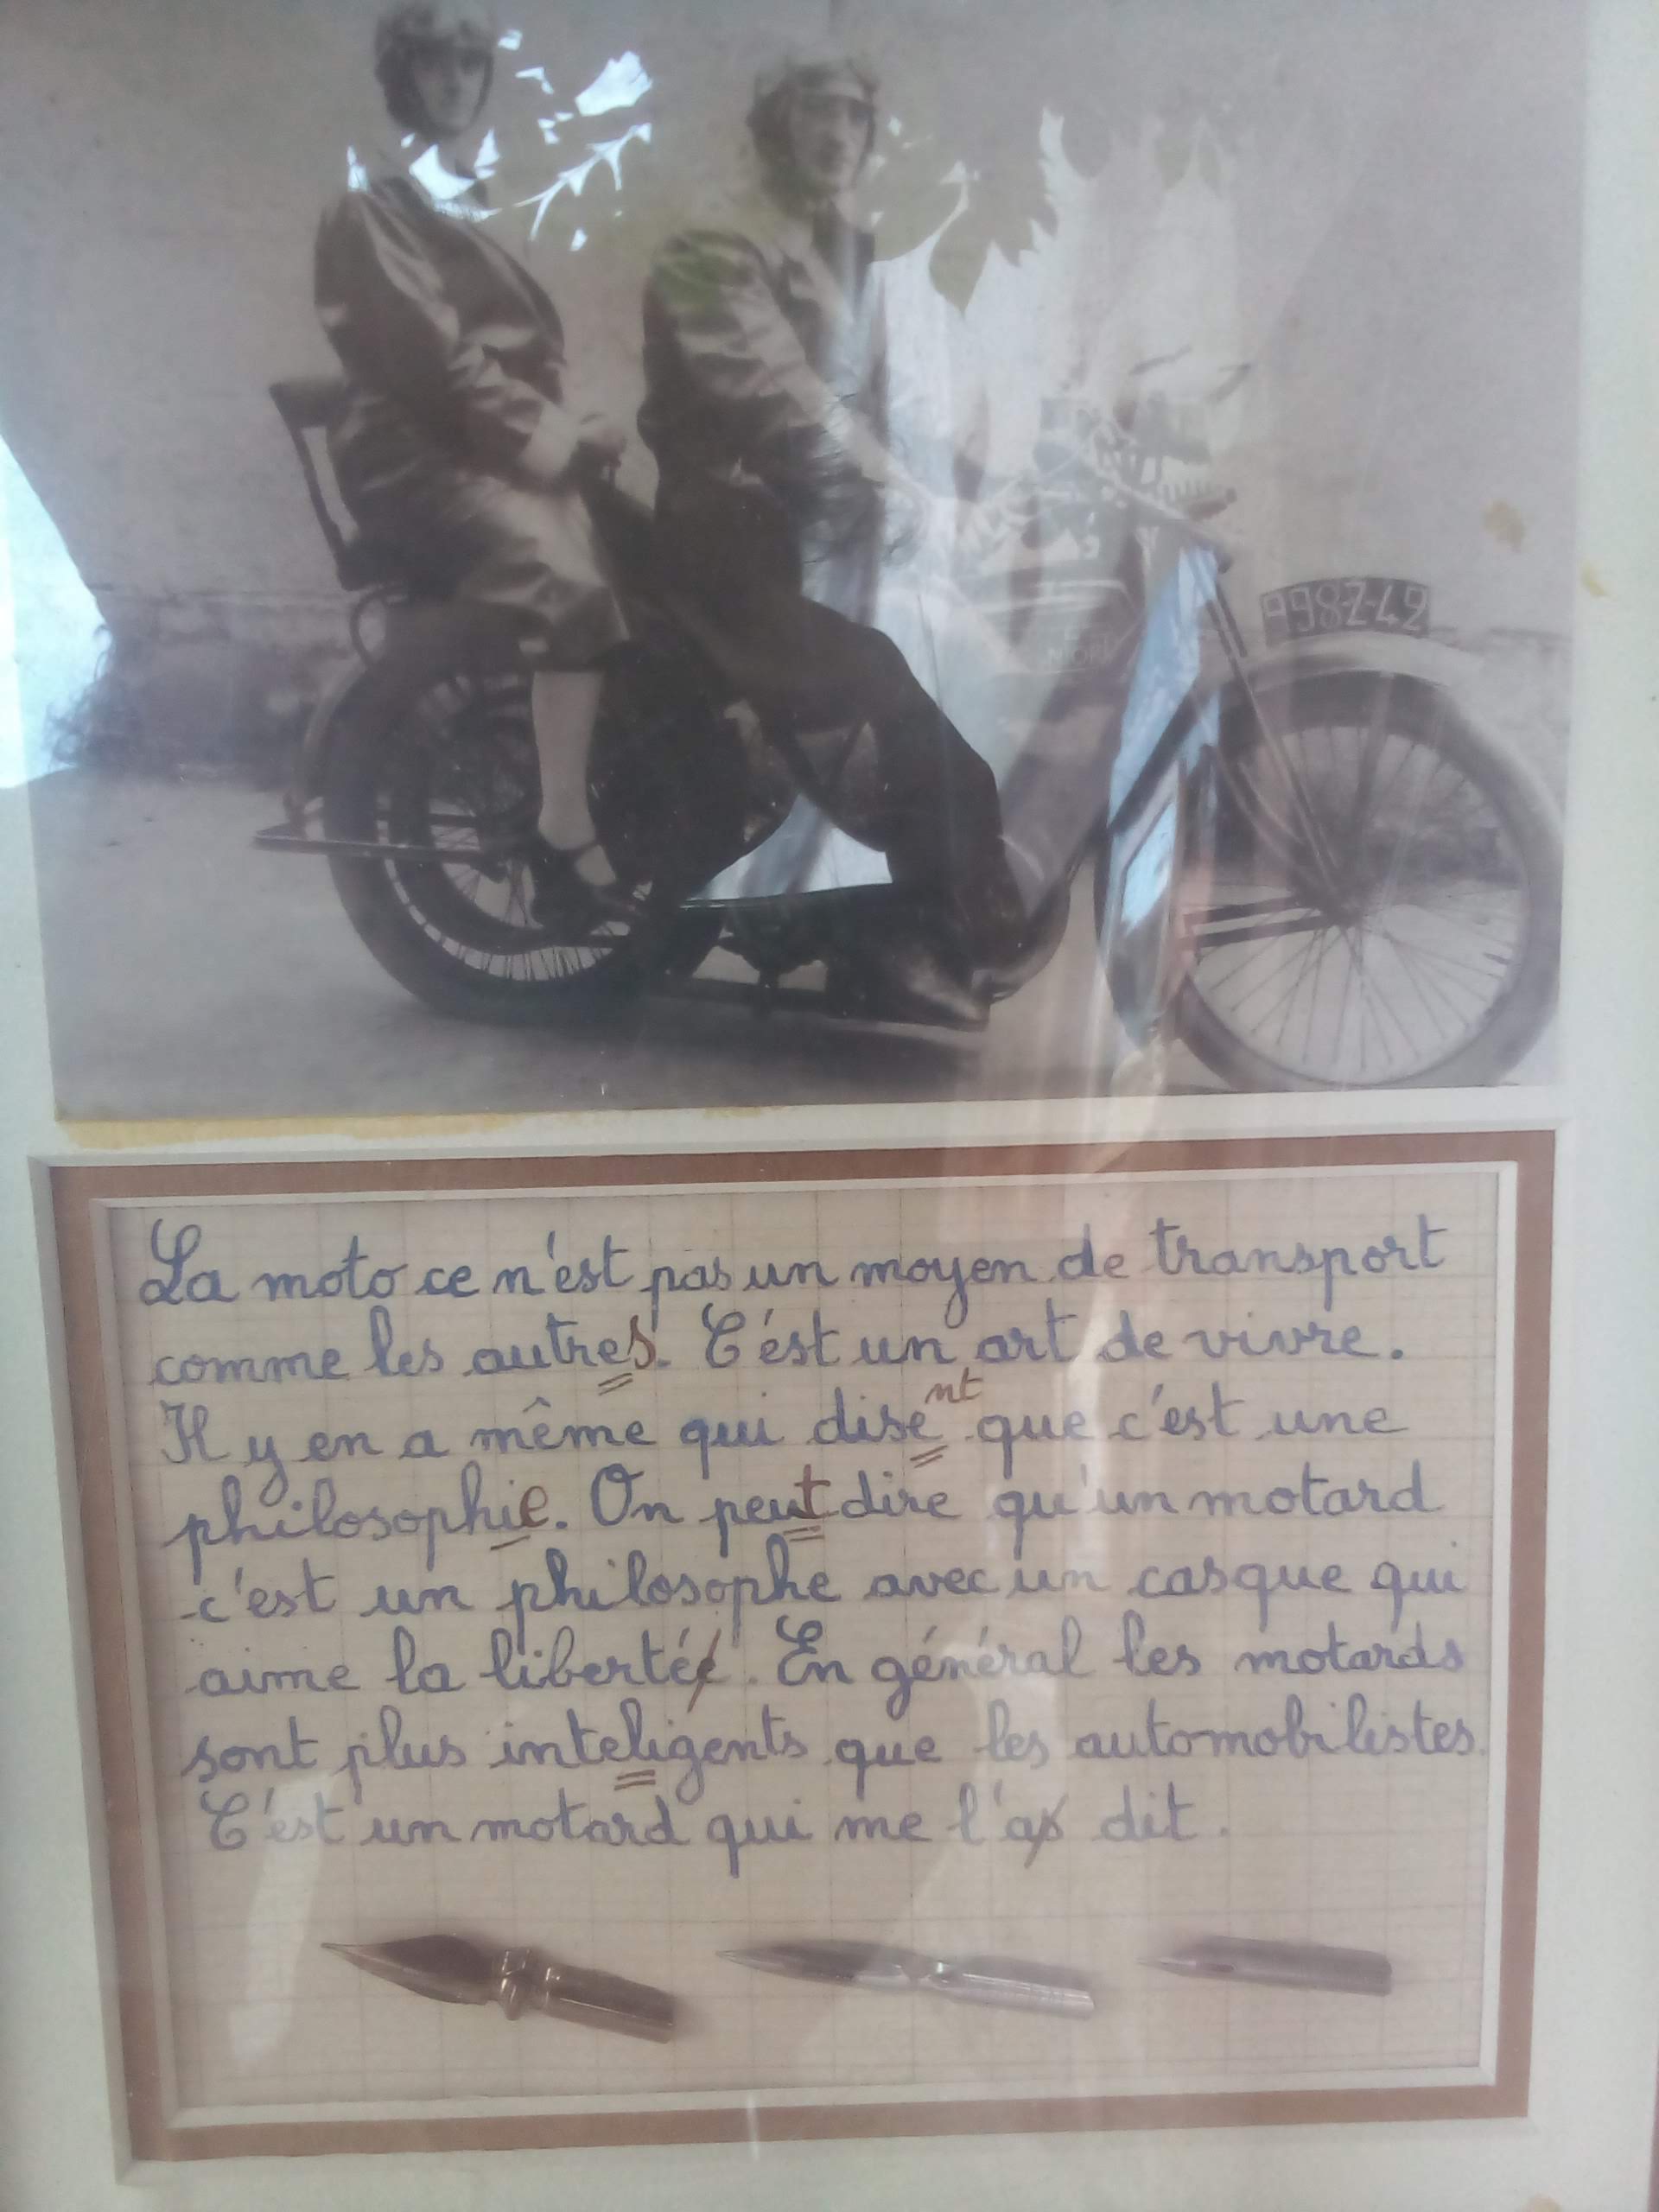 998Z-42
La moto ce n'est pas un moyen de transport
comme les autres. C'est un art de vivre.
Il y en a même qui disent que c'est une
philosophie. On peut dire qu'un motard
c'est un philosophe avec un casque qui
aime la libertée. En général les motards
sont plus inteligents que les automobilistes.
C'est un motard qui me l'as dit.